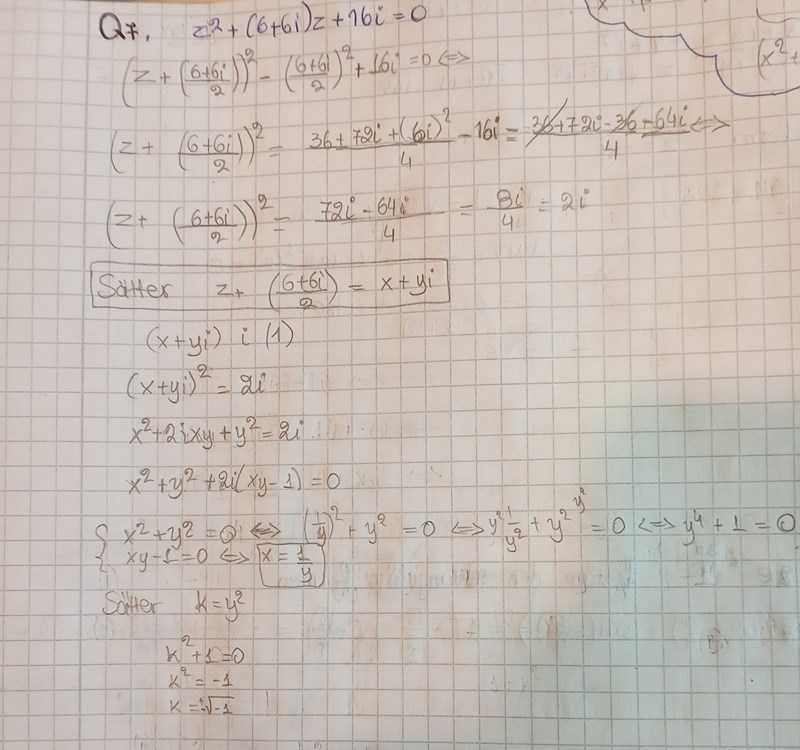 Q7. z² + (6+6i)z + 16i = 0
(z + ((6+6i)/2))² - ((6+6i)/2)² + 16i = 0 <=>
(z + ((6+6i)/2))² = (36 + 72i + (6i)²)/4 - 16i = (36 + 72i - 36 - 64i)/4 <=>
(z + ((6+6i)/2))² = (72i - 64i)/4 = 8i/4 = 2i
Sätter z + ((6+6i)/2) = x + yi
(x + yi) i (1)
(x + yi)² = 2i
x² + 2ixy + y² = 2i
x² + y² + 2i(xy - 1) = 0
x² + y² = 0 <=> (1/y)² + y² = 0 <=> y² 1/y² + y² y² = 0 <=> y⁴ + 1 = 0
xy - 1 = 0 <=> x = 1/y
Sätter k = y²
k² + 1 = 0
k² = -1
k = √-1